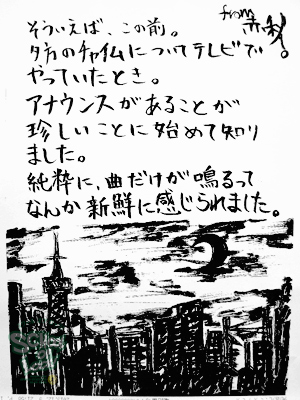 from
赤秋！
そういえば、この前。
夕方のチャイムについてテレビで
やっていたとき。
アナウンスがあることが
珍しいことに始めて知り
ました。
純粋に、曲だけが鳴るって
なんか新鮮に感じられました。